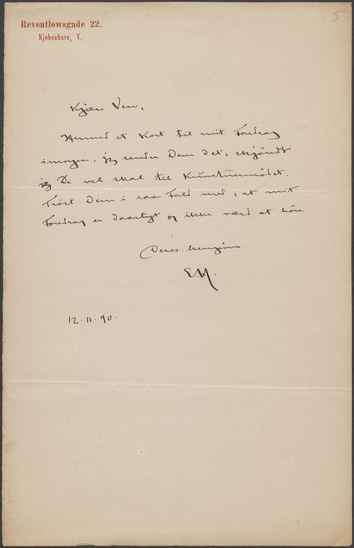 Reventlowsgade 22.
Kjøbenhavn, V.
Kjære Ven,
Hermed et Kort til mit Foredrag
imorgen. Jeg sender Dem det, skjøndt
jeg De vel skal til Kunstnermødet.
Trøst Dem i saa Fald med, at mit
Foredrag er daarligt og ikke værd at høre
Deres hengivne
12.11.90.